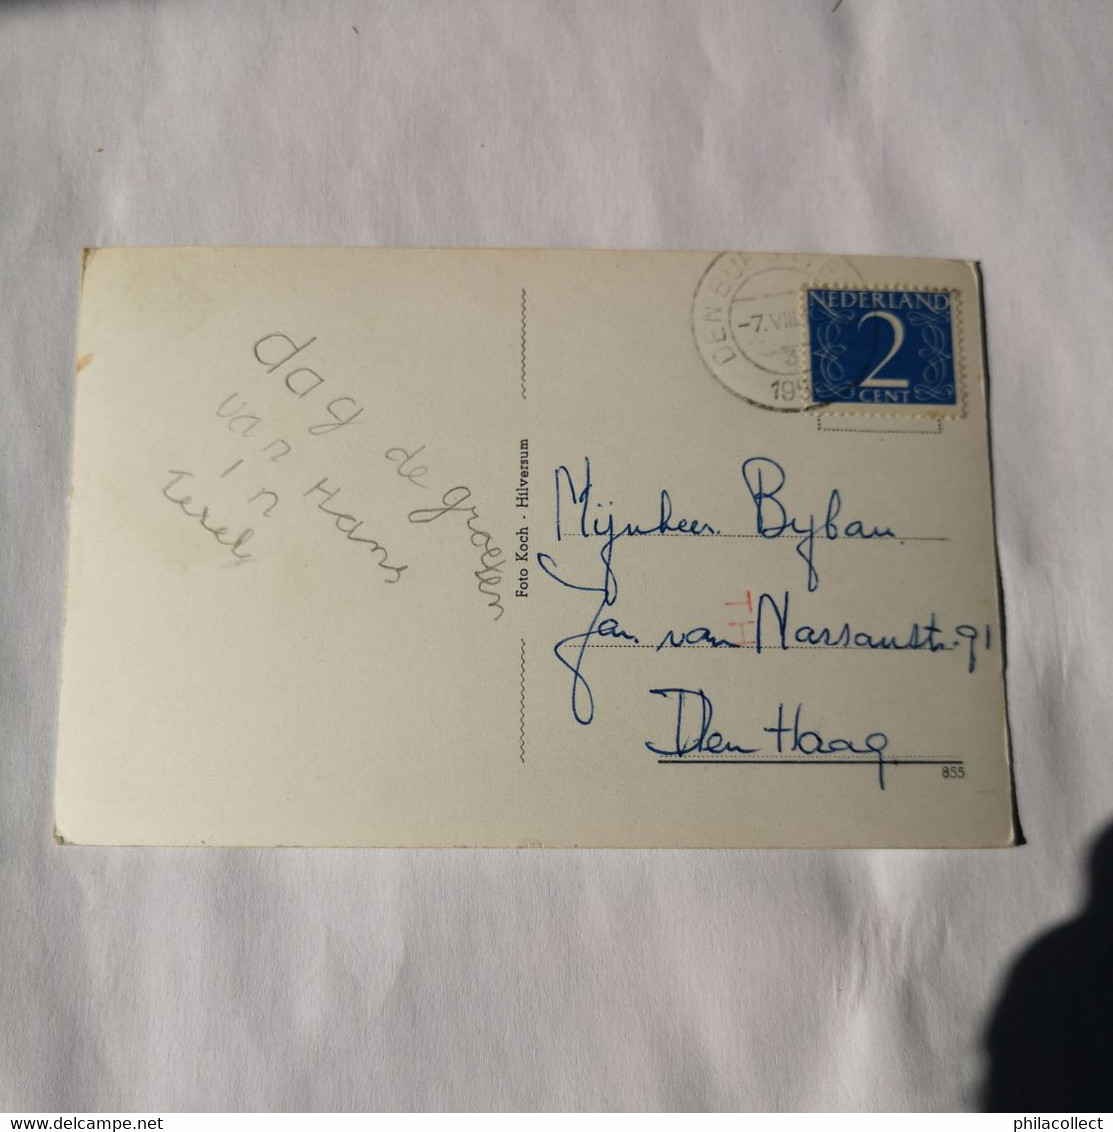 dag de groeten
van Hans
in
Texel
Foto Koch - Hilversum
DEN BU
-7.VIII
195
NEDERLAND
2
CENT
Mijnheer Bybau
Jan van Nassaustr. 91
Den Haag
855
delcampe.net
philacollect